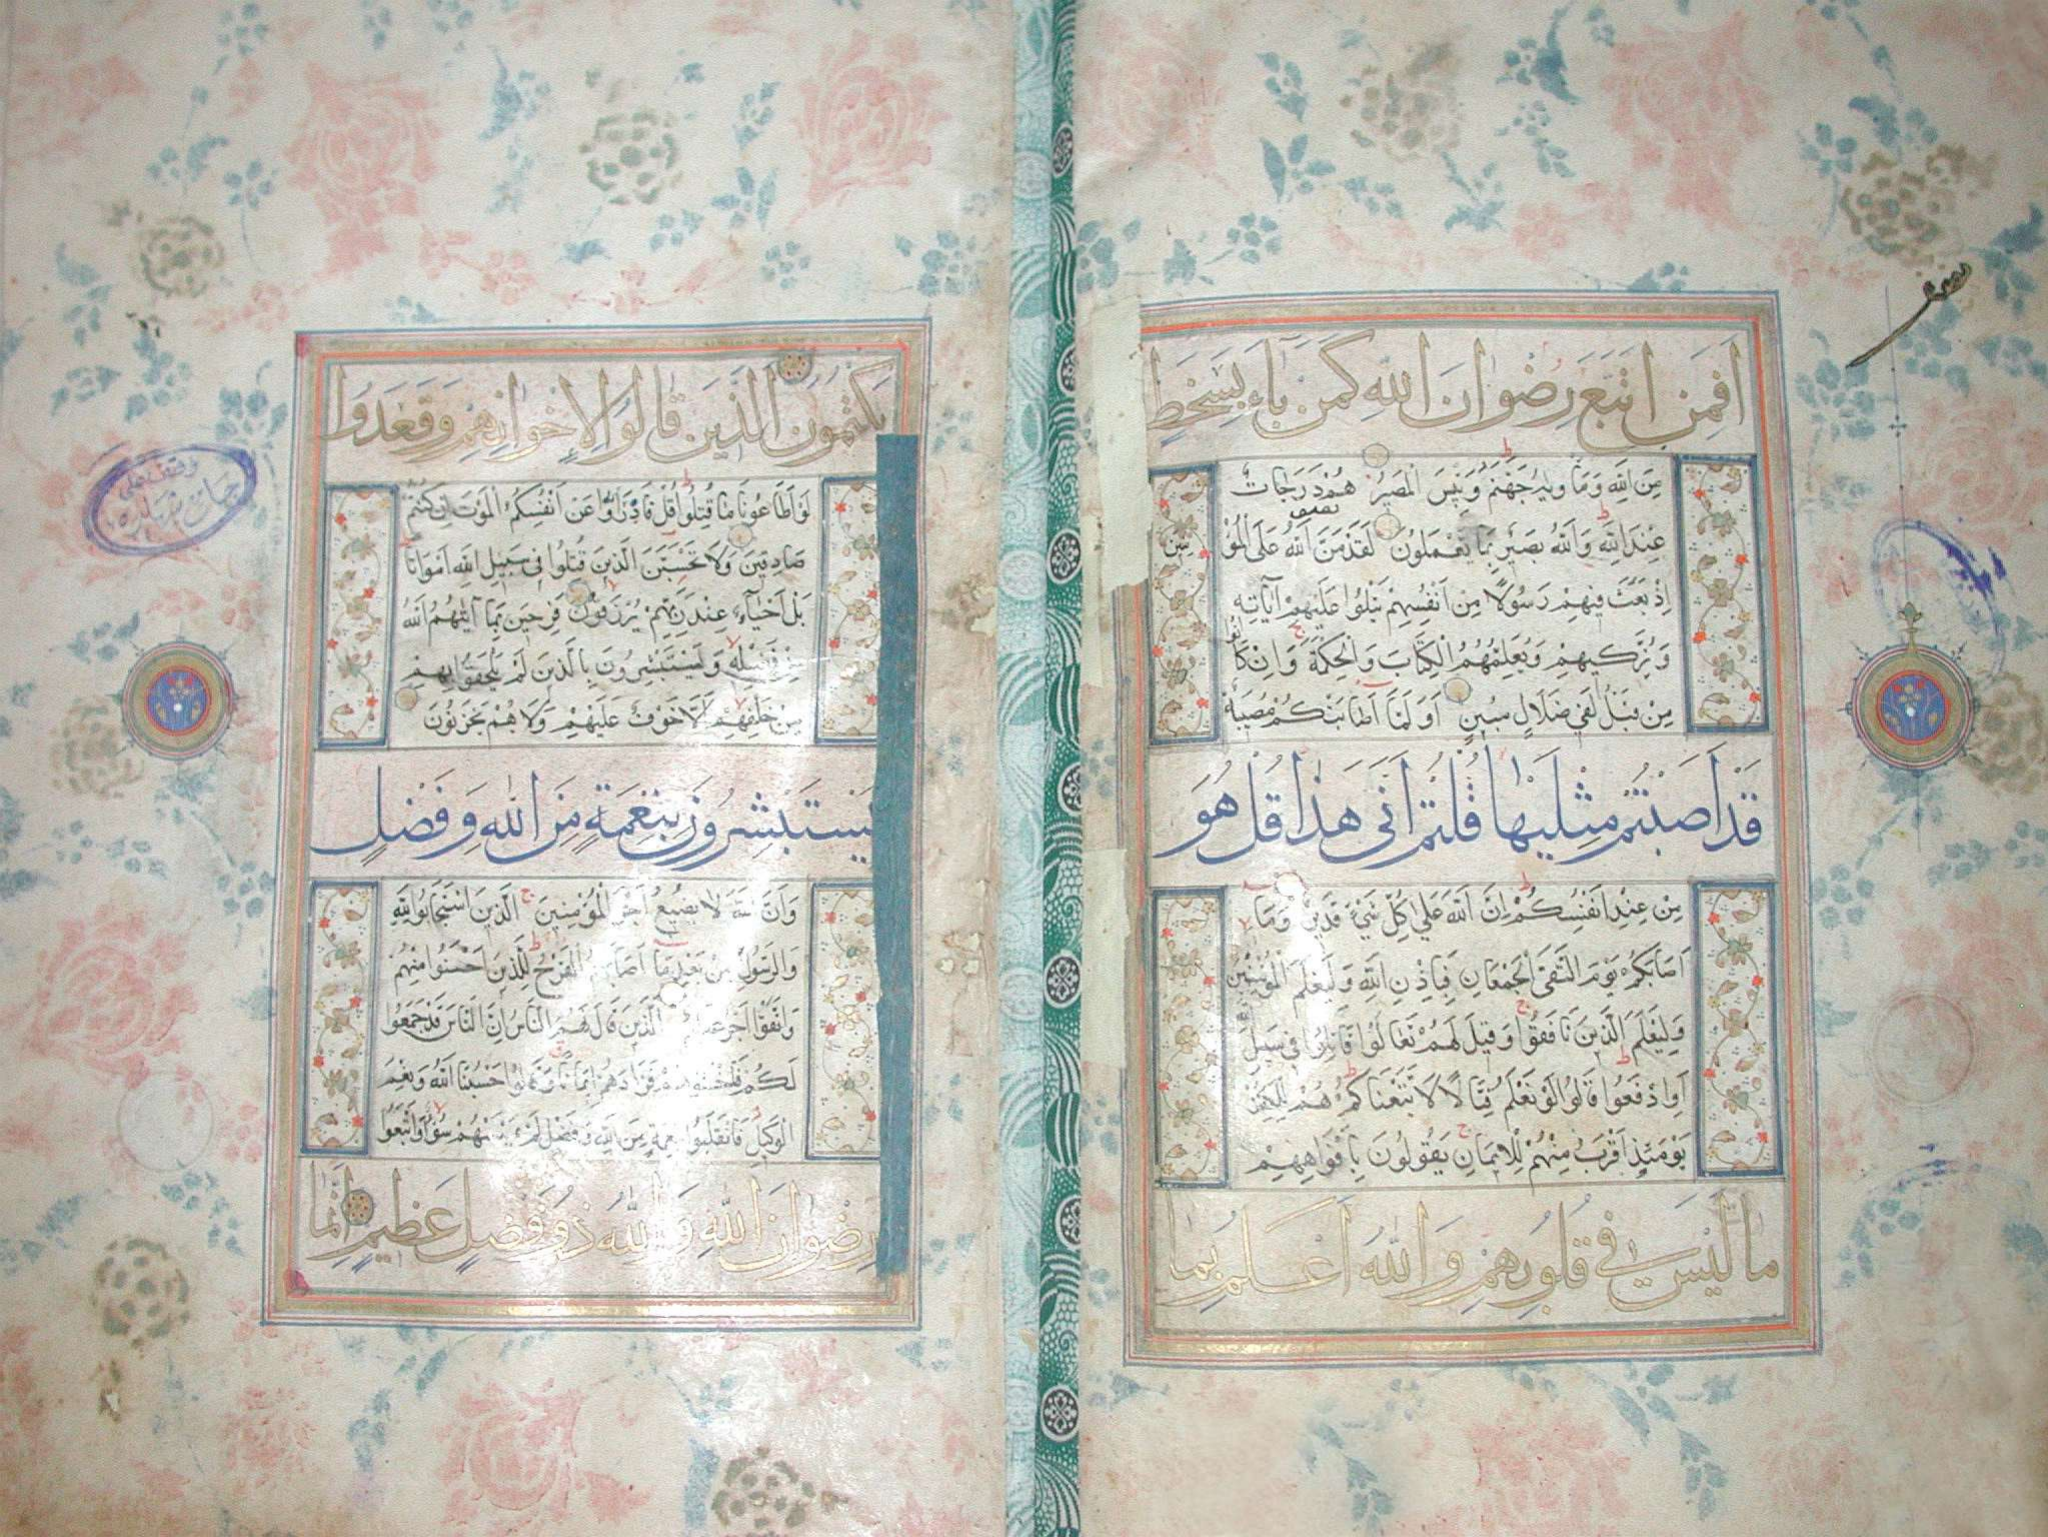 اَفَمَنِ اتَّبَعَ رِضْوَانَ اللّٰهِ كَمَنْ بَآءَ بِسَخَطٍ
مِنَ اللّٰهِ وَمَأْوٰيهُ جَهَنَّمُ وَبِئْسَ الْمَصِيرُ هُمْ دَرَجَاتٌ
عِنْدَ اللّٰهِ وَاللّٰهُ بَصِيرٌ بِمَا يَعْمَلُونَ لَقَدْ مَنَّ اللّٰهُ عَلَى الْمُؤْمِنِينَ
اِذْ بَعَثَ فِيهِمْ رَسُولًا مِنْ اَنْفُسِهِمْ يَتْلُوا عَلَيْهِمْ اٰيَاتِهِ
وَيُزَكِّيهِمْ وَيُعَلِّمُهُمُ الْكِتَابَ وَالْحِكْمَةَ وَاِنْ كَانُوا
مِنْ قَبْلُ لَفِي ضَلَالٍ مُبِينٍ اَوَلَمَّا اَصَابَتْكُمْ مُصِيبَةٌ
قَدْ اَصَبْتُمْ مِثْلَيْهَا قُلْتُمْ اَنّٰى هٰذَا قُلْ هُوَ
مِنْ عِنْدِ اَنْفُسِكُمْ اِنَّ اللّٰهَ عَلٰى كُلِّ شَيْءٍ قَدِيرٌ وَمَا
اَصَابَكُمْ يَوْمَ الْتَقَى الْجَمْعَانِ فَبِاِذْنِ اللّٰهِ وَلِيَعْلَمَ الْمُؤْمِنِينَ
وَلِيَعْلَمَ الَّذِينَ نَافَقُوا وَقِيلَ لَهُمْ تَعَالَوْا قَاتِلُوا فِي سَبِيلِ
اَوِ ادْفَعُوا قَالُوا لَوْ نَعْلَمُ قِتَالًا لَاتَّبَعْنَاكُمْ هُمْ لِلْكُفْرِ
يَوْمَئِذٍ اَقْرَبُ مِنْهُمْ لِلْاِيمَانِ يَقُولُونَ بِاَفْوَاهِهِمْ
مَا لَيْسَ فِي قُلُوبِهِمْ وَاللّٰهُ اَعْلَمُ بِمَا
يَكْتُمُونَ اَلَّذِينَ قَالُوا لِاِخْوَانِهِمْ وَقَعَدُوا
لَوْ اَطَاعُونَا مَا قُتِلُوا قُلْ فَادْرَؤُا عَنْ اَنْفُسِكُمُ الْمَوْتَ اِنْ كُنْتُمْ
صَادِقِينَ وَلَا تَحْسَبَنَّ الَّذِينَ قُتِلُوا فِي سَبِيلِ اللّٰهِ اَمْوَاتًا
بَلْ اَحْيَآءٌ عِنْدَ رَبِّهِمْ يُرْزَقُونَ فَرِحِينَ بِمَا اٰتٰيهُمُ اللّٰهُ
مِنْ فَضْلِهِ وَيَسْتَبْشِرُونَ بِالَّذِينَ لَمْ يَلْحَقُوا بِهِمْ
مِنْ خَلْفِهِمْ اَلَّا خَوْفٌ عَلَيْهِمْ وَلَا هُمْ يَحْزَنُونَ
يَسْتَبْشِرُونَ بِنِعْمَةٍ مِنَ اللّٰهِ وَفَضْلٍ
وَاَنَّ اللّٰهَ لَا يُضِيعُ اَجْرَ الْمُؤْمِنِينَ اَلَّذِينَ اسْتَجَابُوا لِلّٰهِ
وَالرَّسُولِ مِنْ بَعْدِ مَا اَصَابَهُمُ الْقَرْحُ لِلَّذِينَ اَحْسَنُوا مِنْهُمْ
وَاتَّقَوْا اَجْرٌ عَظِيمٌ اَلَّذِينَ قَالَ لَهُمُ النَّاسُ اِنَّ النَّاسَ قَدْ جَمَعُوا
لَكُمْ فَاخْشَوْهُمْ فَزَادَهُمْ اِيمَانًا وَقَالُوا حَسْبُنَا اللّٰهُ وَنِعْمَ
الْوَكِيلُ فَانْقَلَبُوا بِنِعْمَةٍ مِنَ اللّٰهِ وَفَضْلٍ لَمْ يَمْسَسْهُمْ سُوءٌ وَاتَّبَعُوا
رِضْوَانَ اللّٰهِ وَاللّٰهُ ذُو فَضْلٍ عَظِيمٍ اِنَّمَا